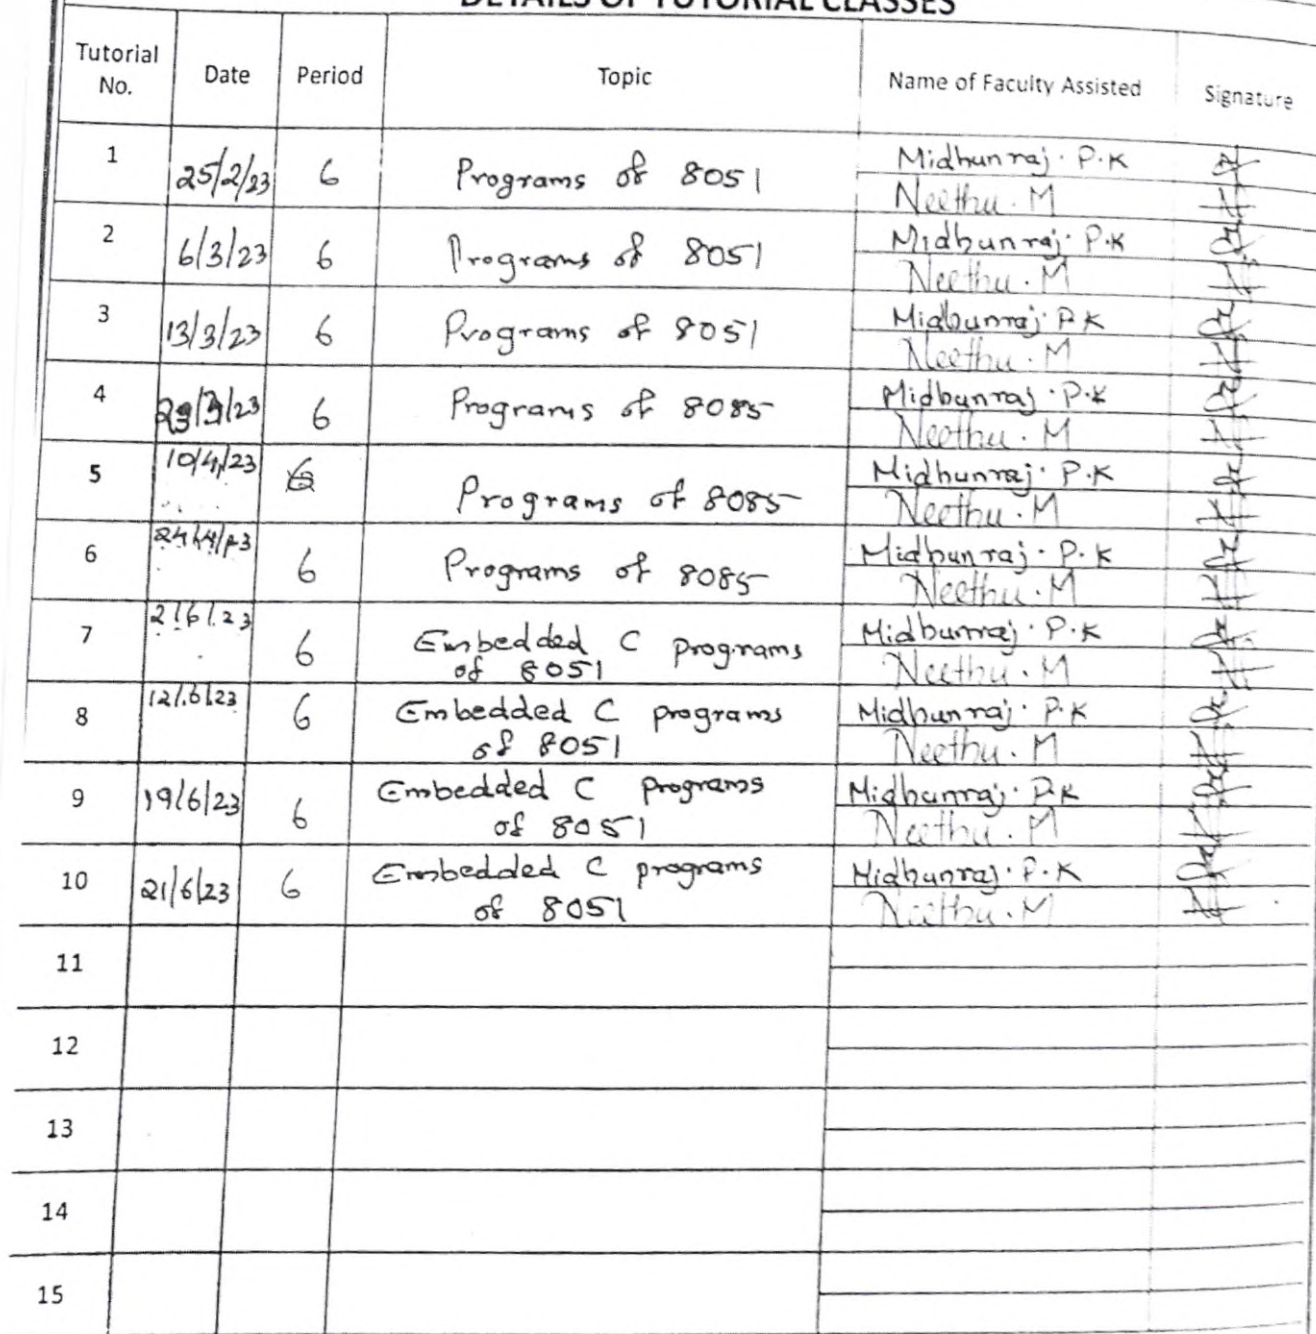 DETAILS OF TUTORIAL CLASSES
Tutorial No. Date Period Topic Name of Faculty Assisted Signature
1 25/2/23 6 Programs of 8051 Midhunraj. P.K
Neethu. M
2 6/3/23 6 Programs of 8051 Midhunraj. P.K
Neethu. M
3 13/3/23 6 Programs of 8051 Midhunraj. P.K
Neethu. M
4 6 Programs of 8085 Midhunraj. P.K
Neethu. M
5 10/4/23 6 Programs of 8085 Midhunraj. P.K
Neethu. M
6 6 Programs of 8085 Midhunraj. P.K
Neethu. M
7 2/6/23 6 Embedded C programs
of 8051
Midhunraj. P.K
Neethu. M
8 12/6/23 6 Embedded C programs
of 8051
Midhunraj. P.K
Neethu. M
9 19/6/23 6 Embedded C programs
of 8051
Midhunraj. P.K
Neethu. M
10 21/6/23 6 Embedded C programs
of 8051
Midhunraj. P.K
Neethu. M
11
12
13
14
15